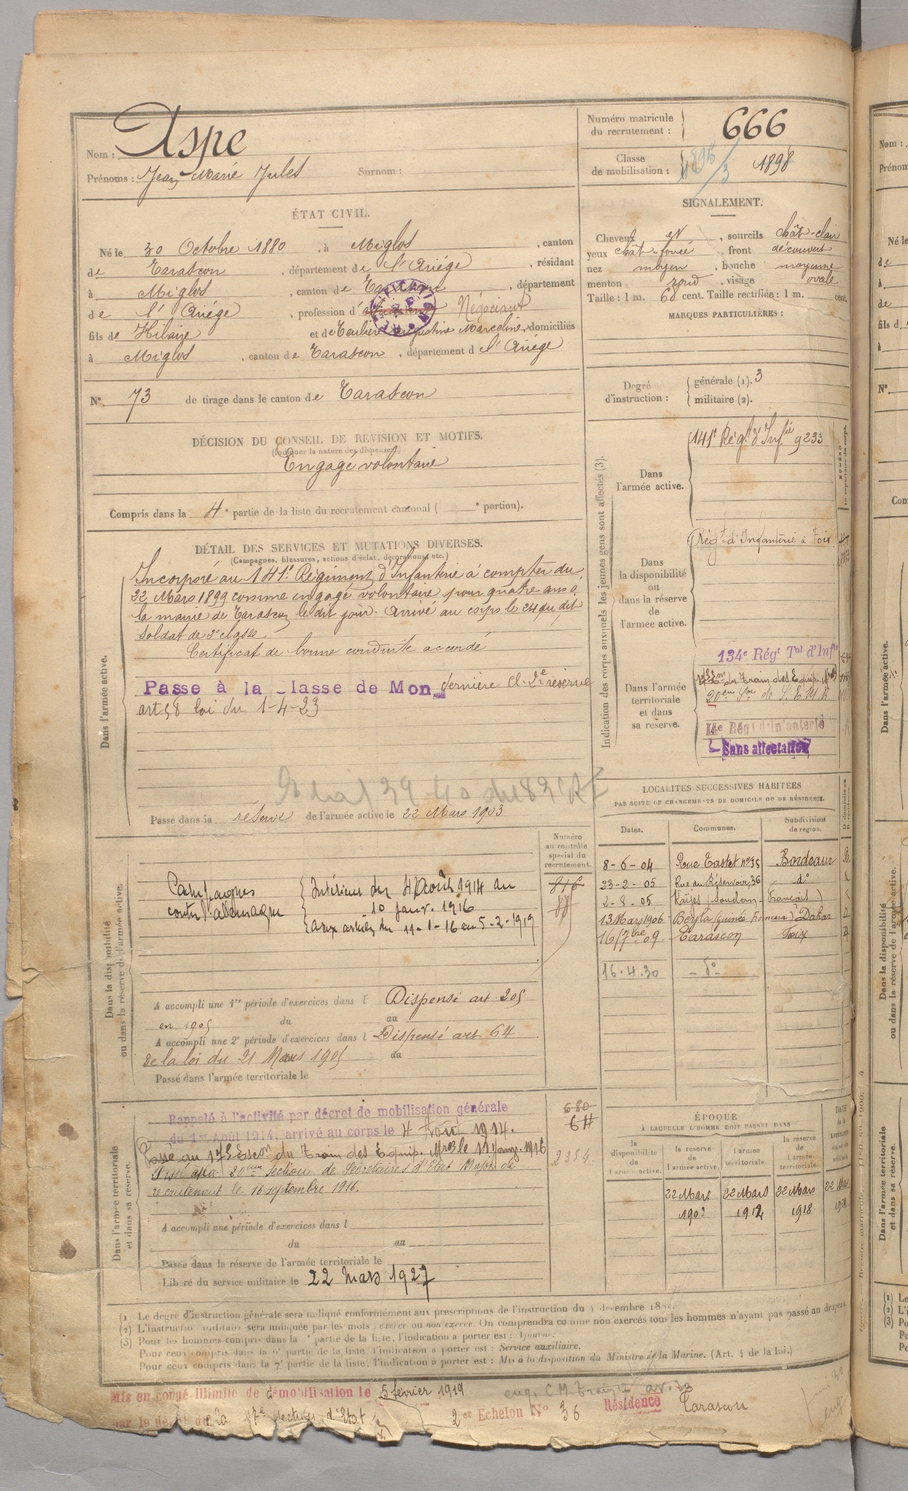 Nom : Aspe
Prénoms : Jean Marie Jules Surnom :
ÉTAT CIVIL.
Né le 30 Octobre 1880, à Miglos, canton
de Tarascon, département de l'Ariège, résidant
à Miglos, canton de Tarascon, département
de l'Ariège, profession d' Négociant
fils de Hilaire et de Augustine Marceline, domiciliés
à Miglos, canton de Tarascon, département d l'Ariège
N° 73 de tirage dans le canton de Tarascon
DÉCISION DU CONSEIL DE REVISION ET MOTIFS.
(Indiquer la nature des dispenses)
Engagé volontaire
Compris dans la 4e partie de la liste du recrutement cantonal ( e portion).
DÉTAIL DES SERVICES ET MUTATIONS DIVERSES.
(Campagnes, blessures, actions d'éclat, décorations, etc.)
Dans l'armée active.
Incorporé au 141e Régiment d'Infanterie à compter du
22 Mars 1899 comme engagé volontaire pour quatre ans à
la mairie de Tarascon le dit jour. Arrivé au corps le 24 du dit
Soldat de 2e classe
Certificat de bonne conduite accordé
Passe à la classe de Mon dernière Cl. 2e réserve
art 58 loi du 1-4-23
Passé dans la réserve de l'armée active le 22 Mars 1903
Numéro au contrôle spécial du recrutement.
Dans la disponibilité ou dans la réserve de l'armée active.
Campagnes { Intérieur du 4 Août 1914 au
contre l'allemagne 10 janv. 1916
aux armées du 11-1-16 au 5-2-1919
816
A accompli une 1re période d'exercices dans l Dispensé art 205
en 1905 du au
A accompli une 2e période d'exercices dans l Dispensé art 64
de la loi du 21 Mars 1905 du
Passé dans l'armée territoriale le
Dans l'armée territoriale et dans sa réserve.
Rappelé à l'activité par décret de mobilisation générale
du 1er Août 1914, arrivé au corps le 4 Août 1914.
Passé au 17e Escon du Train des Equip. Mres le 11 Janv. 1916
Passé à la 20eme Section de Secrétaires d'Etat Major de
recrutement le 16 septembre 1916.
680
64
2354
A accompli une période d'exercices dans l
du au
Passé dans la réserve de l'armée territoriale le
Libéré du service militaire le 22 Mars 1927
Numéro matricule du recrutement : 666
Classe de mobilisation : 1896/3 1898
SIGNALEMENT.
Cheveux et , sourcils chât-clair
yeux chât-foncé, front découvert
nez moyen, bouche moyenne
menton rond, visage ovale
Taille : 1 m. 60 cent. Taille rectifiée : 1 m. cent.
MARQUES PARTICULIÈRES :
Degré d'instruction : { générale (1). 3
militaire (2).
Indication des corps auxquels les jeunes gens sont affectés (3).
Dans l'armée active.
141e Régt d'Infie 9233
Dans la disponibilité ou dans la réserve de l'armée active.
Régt d'Infanterie à Foix
Dans l'armée territoriale et dans sa réserve.
134e Régt Tal d'Infie
17e Escon du Train des Equip. Mres
20eme Son de S.E.M.R
Régt d'Infanterie
Sans affectation
LOCALITÉS SUCCESSIVES HABITÉES
PAR SUITE DE CHANGEMENTS DE DOMICILE OU DE RÉSIDENCE.
Dates. Communes. Subdivisions de région.
8-6-04 Rue Castet n°35 Bordeaux
23-2-05 Rue du Réservoir, 36 d°
2-8-05 Kayes (Soudan Français)
13 Mars 1906 Beyla (guinée française) Dakar
16/7bre 09 Tarascon Foix
16.4.30 - d° -
ÉPOQUE
A LAQUELLE L'HOMME DOIT PASSER DANS
la disponibilité de l'armée active. la réserve de l'armée active. l'armée territoriale. la réserve de l'armée territoriale.
22 Mars 1903 22 Mars 1912 22 Mars 1918 22 Mars
(1) Le degré d'instruction générale sera indiqué conformément aux prescriptions de l'instruction du 4 décembre 18
(2) L'instruction militaire sera indiquée par les mots : exercé ou non exercé. On comprendra comme non exercés tous les hommes n'ayant pas passé au drapeau
(3) Pour les hommes compris dans la partie de la liste, l'indication à porter est : Ajourné.
Pour ceux compris dans la partie de la liste, l'indication à porter est : Service auxiliaire.
Pour ceux compris dans la 7e partie de la liste, l'indication à porter est : Mis à la disposition du Ministre de la Marine. (Art. 4 de la loi.)
Mis en congé illimité de démobilisation le 5 février 1919
2 er Echelon N° 36 Résidence Tarascon